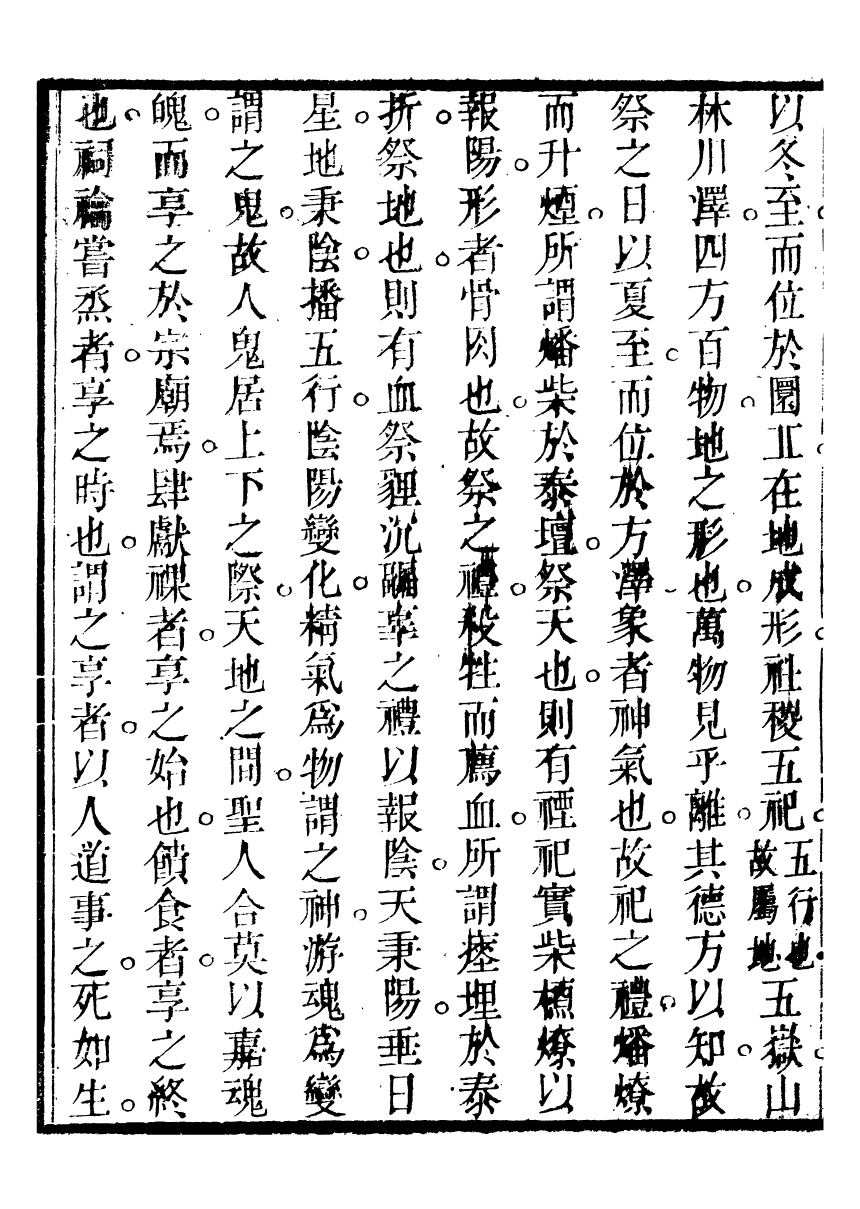 以冬至而位於圜丘在地成形社稷五祀五行也故屬地五嶽山
林川澤四方百物地之形也萬物見乎離其德方以知故
祭之日以夏至而位於方澤象者神氣也故祀之禮燔燎
而升煙所謂燔柴於泰壇祭天也則有禋祀實柴槱燎以
報陽形者骨肉也故祭之禮殺牲而薦血所謂瘞埋於泰
折祭地也則有血祭貍沉疈辜之禮以報陰天秉陽垂日
星地秉陰播五行陰陽變化精氣爲物謂之神游魂爲變
謂之鬼故人鬼居上下之際天地之間聖人合莫以嘉魂
魄而享之於宗廟焉肆獻祼者享之始也饋食者享之終
也祠禴嘗烝者享之時也謂之享者以人道事之死如生